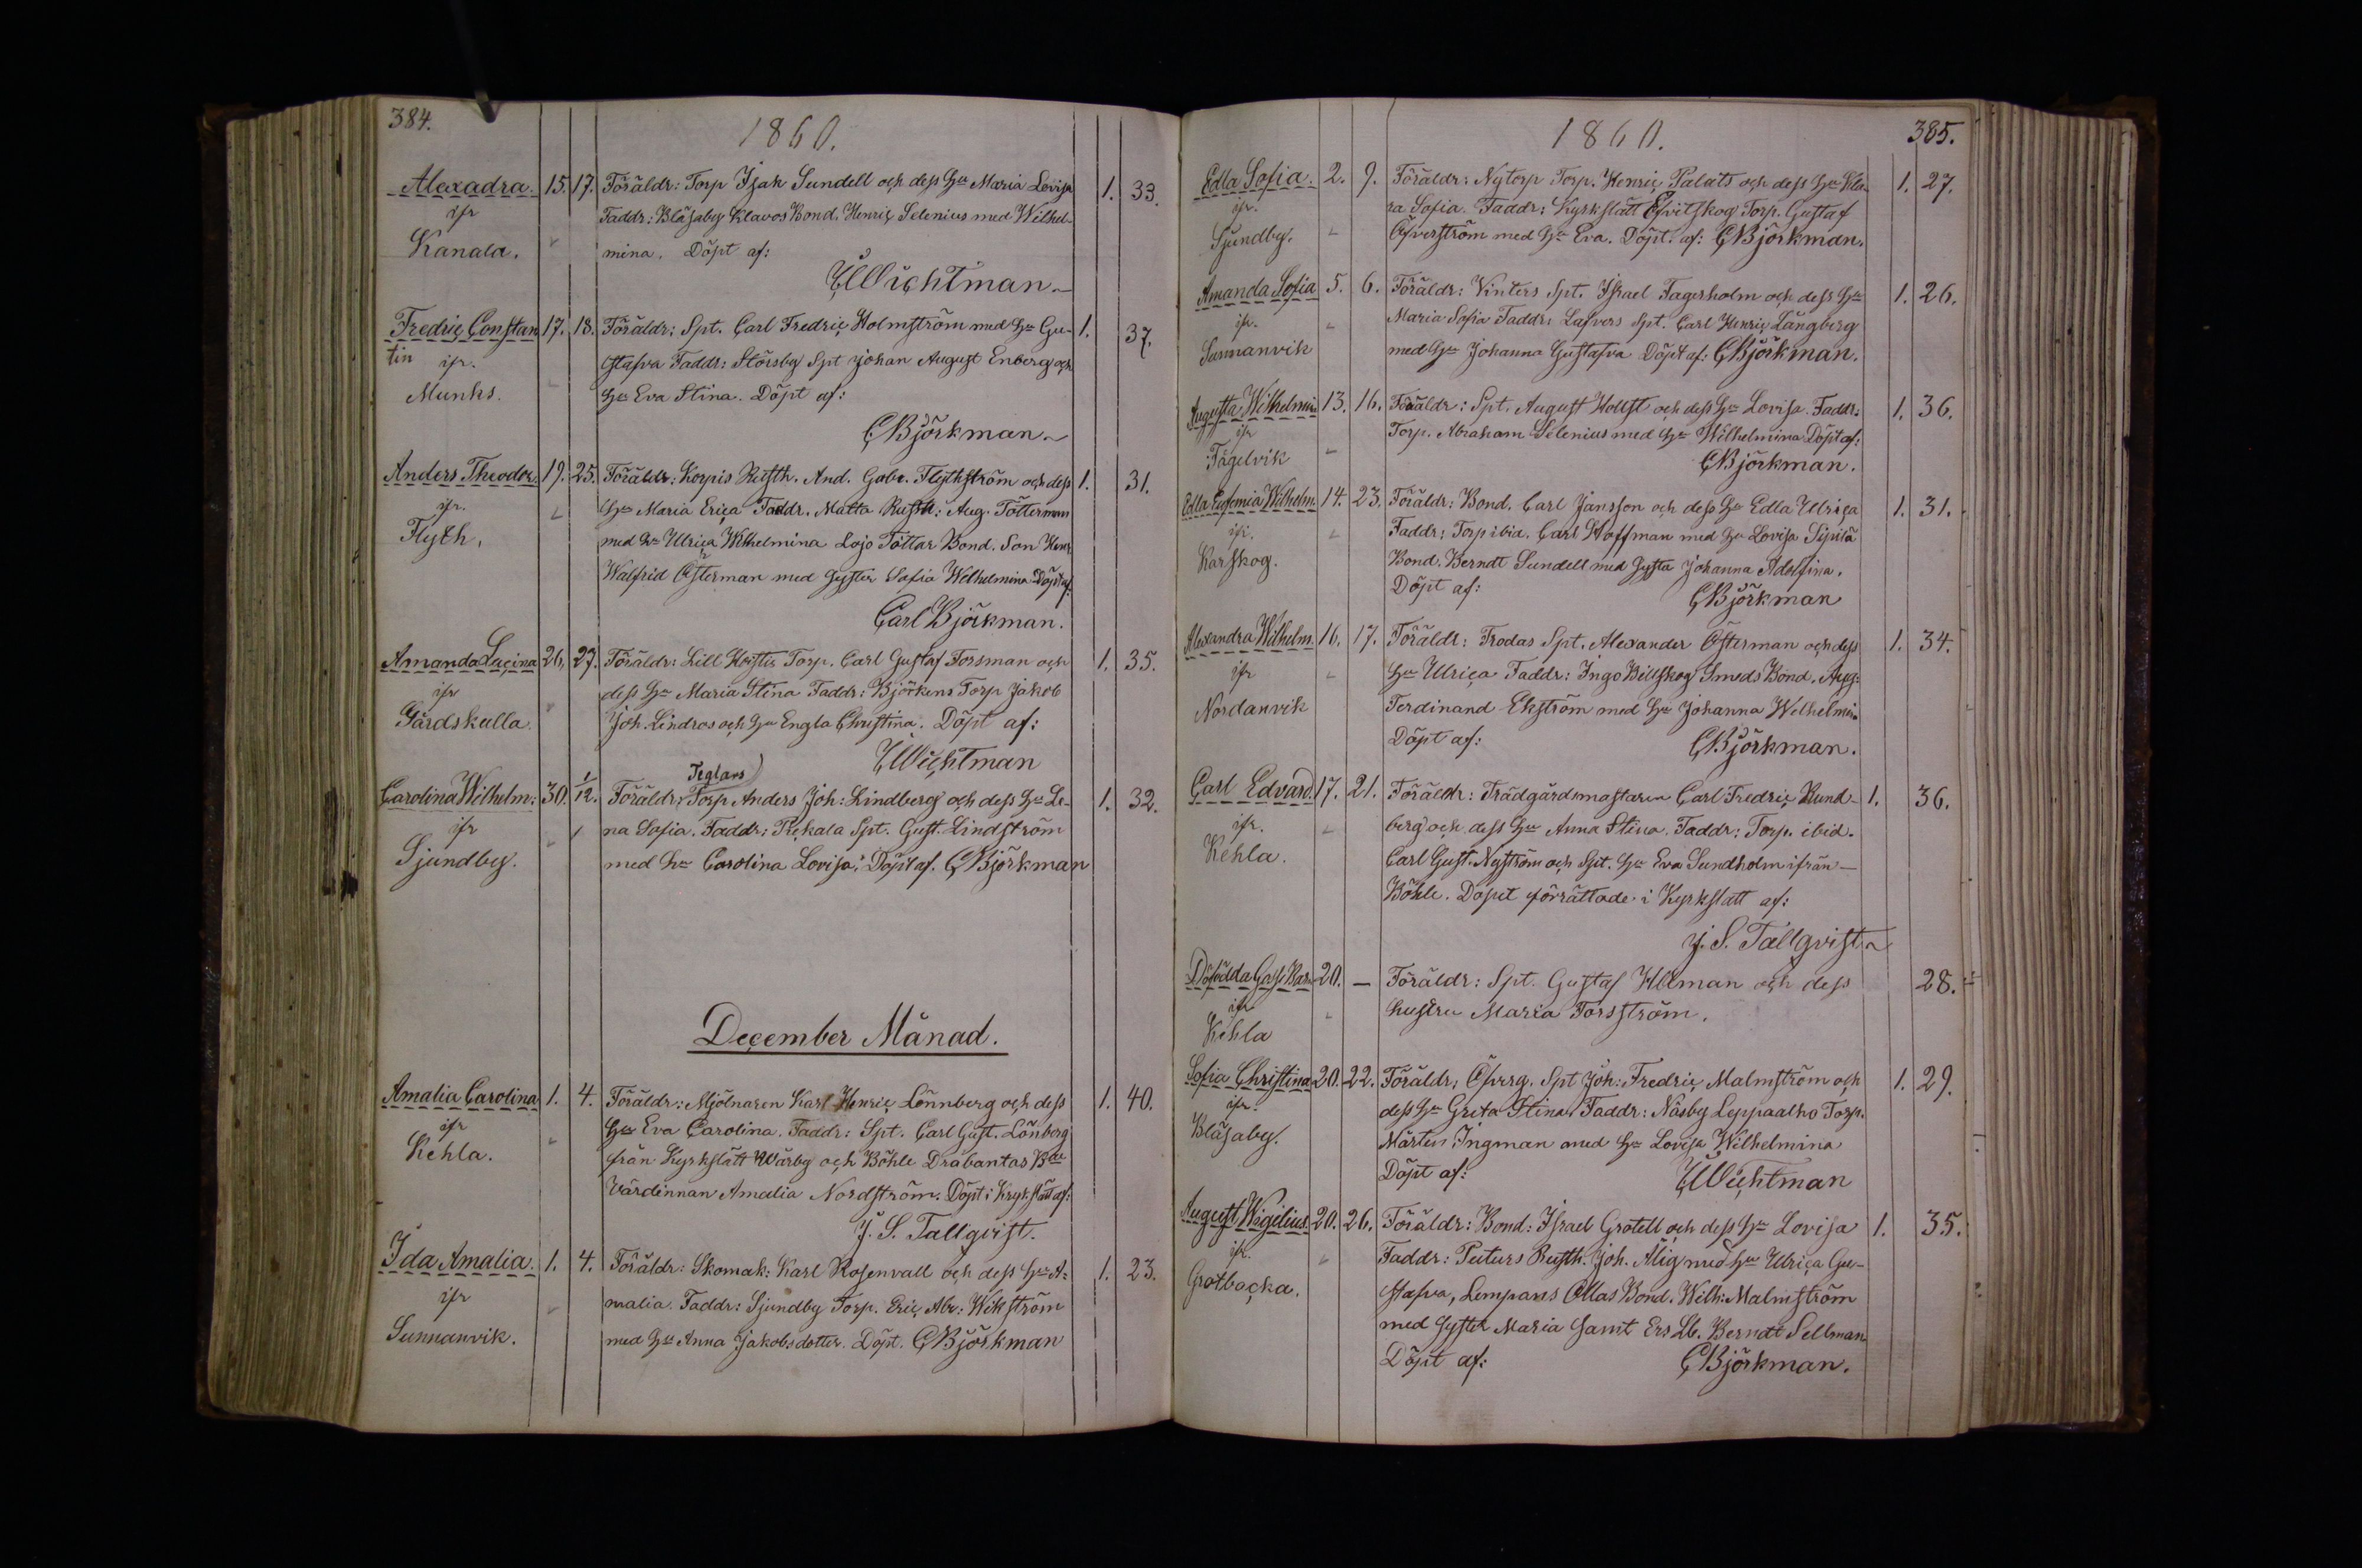 384.
1860.
Alexadra. 15. 17. Föräldr: Torp Isak Sundell och dess Hu Maria Lovisa 1. 33.
ifr Faddr: Blåsaby Klavos Bond. Henric Selenius med Wilhel-
Kanala. mina. Döpt af:
Wichtman
Fredric Constan 17. 18. Föräldr: Spt. Carl Fredric Holmström med Hu Gu- 1. 37.
tin ifr. stafva Faddr: Störsby Spt Johan August Enberg och
Munks. Hu Eva Stina. Döpt af:
CBjörkman
Anders Theodor. 19. 25. Föräldr. Korpis Rusth. And. Gabr. Flythström och dess 1. 31.
ifr. Hu Maria Erica Faddr. Matta Rusth: Aug. Tötterman
Flyth. med Hu Ulrica Wilhelmina Lojo Töttar Bond. Son Henr
Walfrid Österman med Syster Sofia Wilhelmina Döpt af:
Carl Björkman.
Amanda Lucina 26. 27. Föräldr: Lill Torp. Carl Gustaf Forsman och 1. 35.
ifr dess Hu Maria Stina Faddr: Björkens Torp Jakob
Gårdskulla. Joh. Lindros och Hu Engla Christina. Döpt af:
Wichtman
Teglars
Carolina Wilhelm: 30. 1/12. Föräldr: Torp Anders Joh: Lindberg och dess Hu Le- 1. 32.
ifr na Sofia. Faddr: Pickala Spt. Gust. Lindström
Sjundby. med Hu Carolina Lovisa. Döpt af. CBjörkman
December Månad.
Amalia Carolina 1. 4. Föräldr: Mjölnaren Karl Henric Lönnberg och dess 1. 40.
ifr Hu Eva Carolina. Faddr: Spt. Carl Gust. Lönberg
Kehla. från Kyrkslätt Wärby och Böhle Drabantas
Värdinnan Amalia Nordström. Döpt i Kyrkslätt af:
J. S. Tallqvist.
Ida Amalia. 1. 4. Föräldr: Skomak: Karl Rosenvall och dess Hu A- 1. 23.
ifr malia. Faddr: Sjundby Torp. Eric Abr: Wikström
Sunnanvik. med Hu Anna Jakobsdotter. Döpt. CBjörkman
1860. 385.
Edla Sofia. 2. 9. Föräldr: Nytorp Torp. Henric Palats och dess Hu Kla- 1. 27.
ifr. ra Sofia. Faddr: Kyrkslätt Evitskog Torp. Gustaf
Sjundby. Öfverström med Hu Eva. Döpt. af: CBjörkman.
Amanda Sofia 5. 6. Föräldr: Vinters Spt. Israel Fagerholm och dess Hu 1. 26.
ifr. Maria Sofia Faddr: Lafvers Spt. Carl Henric Långberg
Sunnanvik med Hu Johanna Gustafva Döpt af: CBjörkman.
Augusta Wilhelmin 13. 16. Föräldr: Spt. August Hollst och dess Hu Lovisa. Faddr: 1. 36.
ifr Torp. Abraham Selenius med Hu Wilhelmina Döpt af:
Fågelvik CBjörkman.
Edla Eufemia Wilhelm. 14. 23. Föräldr: Bond. Carl Jansson och dess Hu Edla Ulrica 1. 31.
ifr. Faddr: Torp ibid. Carl Hoffman med Hu Lovisa
Karskog. Bond. Berndt Sundell med Systa Johanna Adolfina.
Döpt af: CBjörkman
Alexandra Wilhelm. 16. 17. Föräldr: Frodas Spt. Alexander Österman och dess 1. 34.
ifr Hu Ulrica Faddr: Ingo Billskog Smeds Bond. Aug:
Nordanvik Ferdinand Ekström med Hu Johanna Wilhelmin
Döpt af: CBjörkman.
Carl Edvard. 17. 21. Föräldr: Trädgårdsmästaren Carl Fredric Rund- 1. 36.
ifr. berg och dess Hu Anna Stina. Faddr: Torp. ibid.
Kehla. Carl Gust. Nyström och Spt. Hu Eva Sundholm ifrån
Böhle. Döpet förrättade i Kyrkslätt af:
J. S. Tallqvist
Dödfödda 20. — Föräldr: Spt. Gustaf Ullman och dess 28.
ifr hustru Maria Forsström.
Kehla
Sofia Christina 20. 22. Föräldr: Spt Joh: Fredric Malmström och 1. 29.
ifr. dess Hu Greta Stina. Faddr: Näsby Leppaalho Torp.
Blåsaby. Mårten Ingman med Hu Lovisa Wilhelmina
Döpt af: Wichtman
August Wigilius 20. 26. Föräldr: Bond: Israel Grotell och dess Hu Lovisa 1. 35.
ifr. Faddr: Peturs Rusth. Joh. Alig med Hu Ulrica Gu-
Grotbacka. stafva, Lempans Ollas Bond. Wilh: Malmström
med Syster Maria samt Ers Lb. Berndt Sellman
Döpt af: CBjörkman.